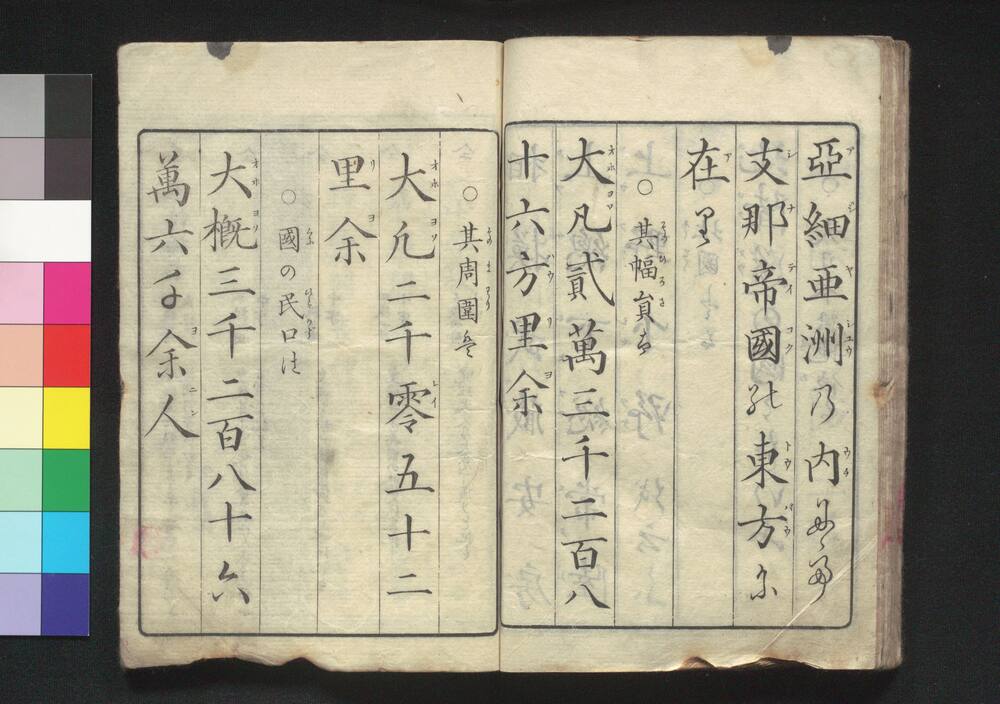 亞細亜洲乃内
支那帝國能東方尓
在里
○其幅員は
大凡貳萬三千二百八
十六方里余
○其周圍は
大凡二千零五十二
里余
○國の民口は
大概三千二百八十六
萬六千余人